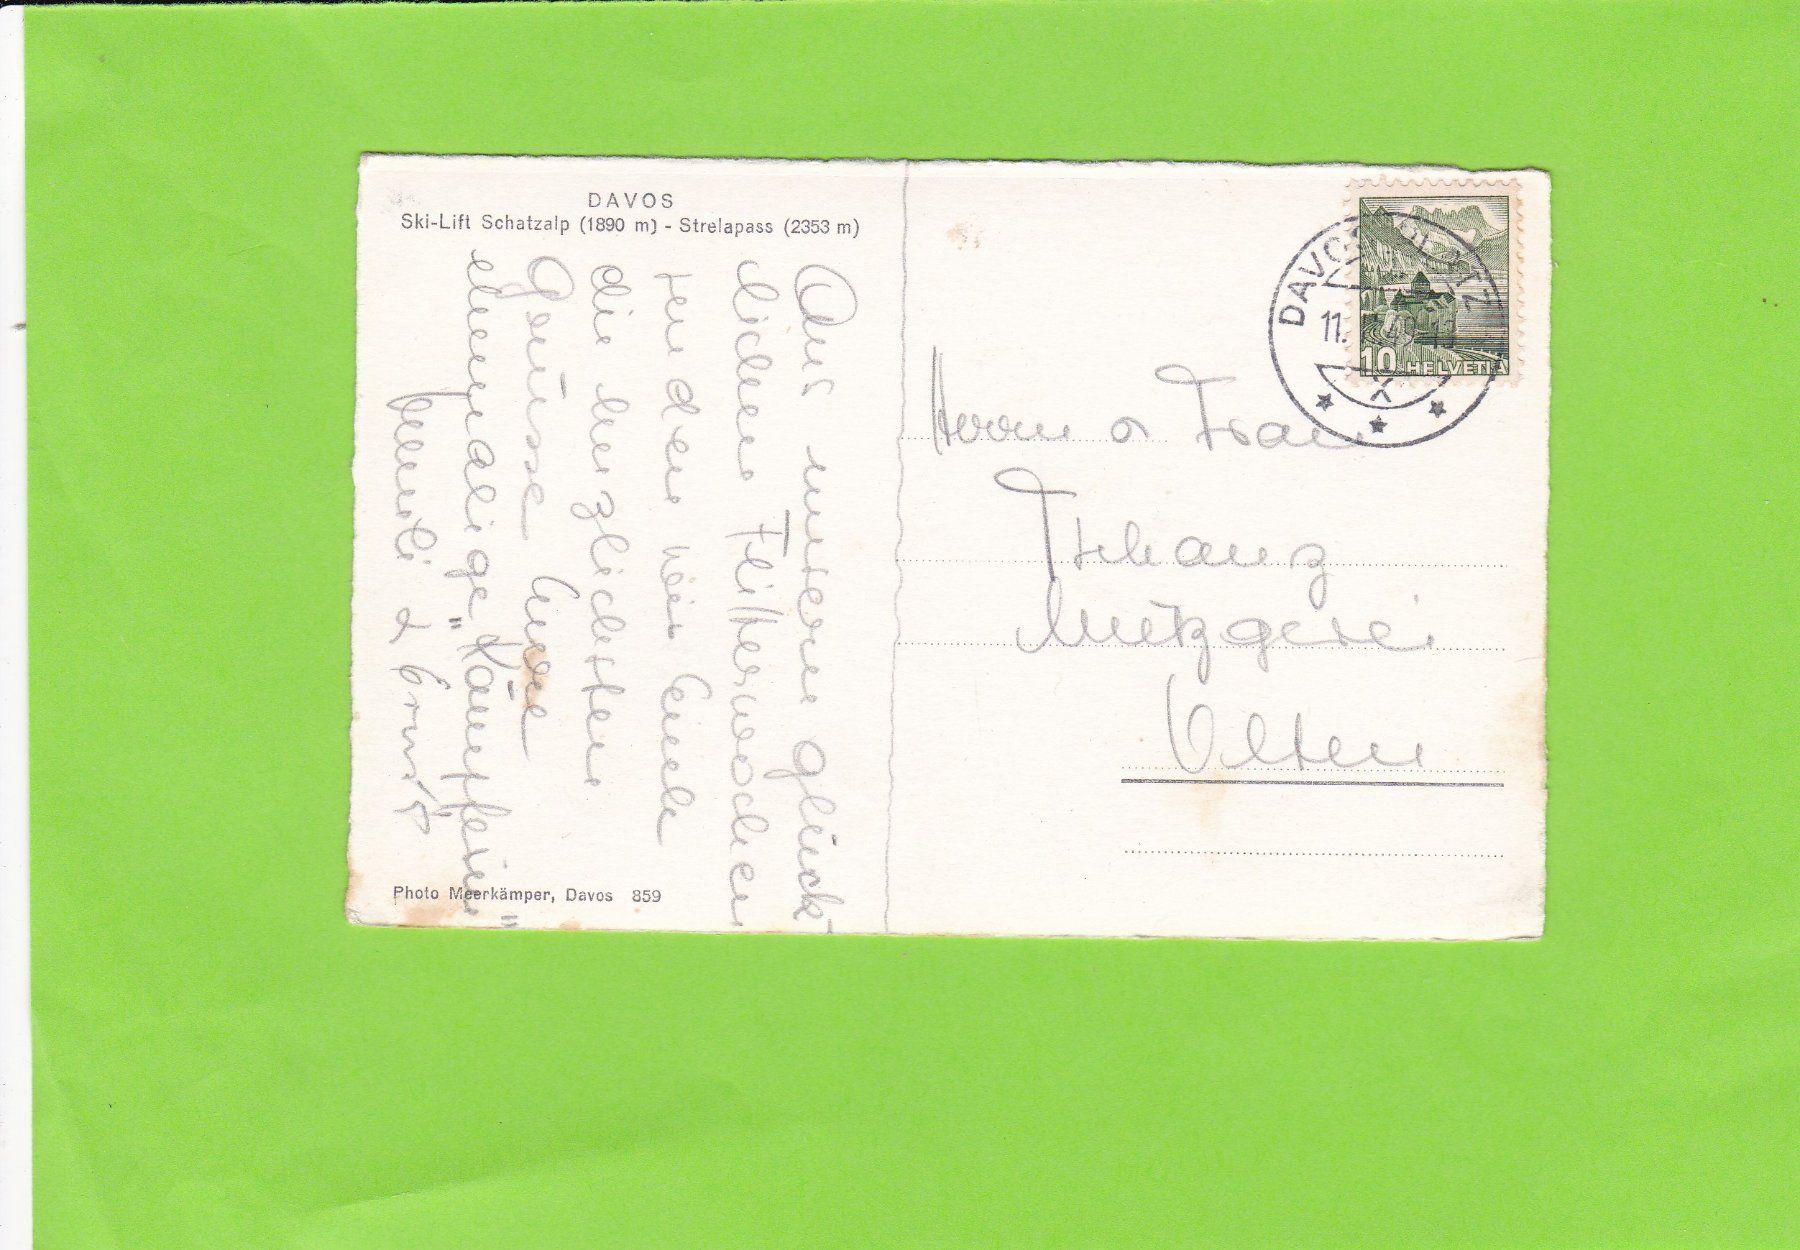 DAVOS
Ski-Lift Schatzalp (1890 m) - Strelapass (2353 m)
Aus unseren glück-
lichen Flitterwochen
senden wir Euch
die herzlichsten
Grüsse Eure
ehemalige "Kämpferin"
& Ernst
Photo Meerkämper, Davos 859
DAVOS PLATZ
11.
10 HELVETIA
Herrn & Frau
Tschanz
Metzgerei
Olten